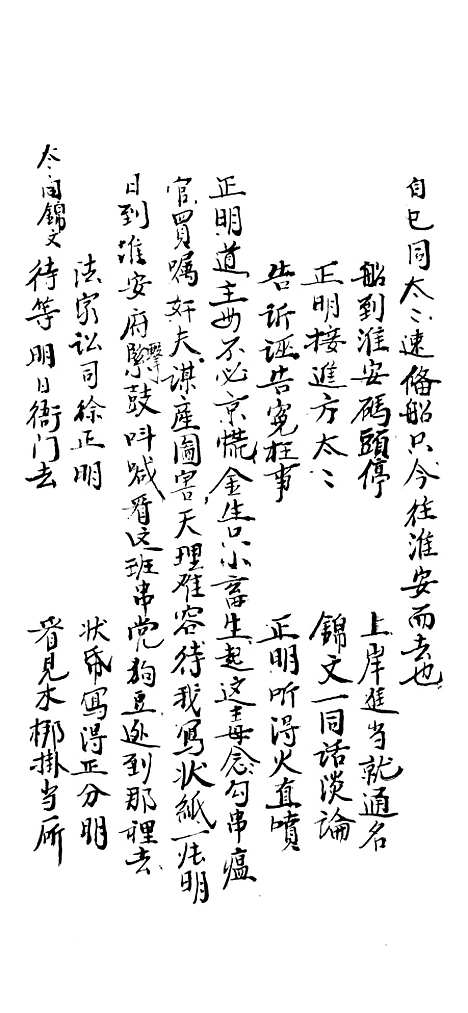 自己同太〻速备船只今往淮安而去也
船到淮安码頭停 上岸進当就通名
正明接進方太〻 錦文一同話淡論
告訴誣告冤枉事 正明听得火直噴
正明道主母不必京慌金生只小畜生起这毒念勾串瘟
官買嘱奸夫謀産圖害天理难容待我寫状紙一张明
日到淮安府緊擊鼓叫喊看这班串党狗豆逃到那裡去
法家讼司徐正明 状𠂤寫得正分明
太〻同錦文待等明日衙门去 看見木梆掛当所